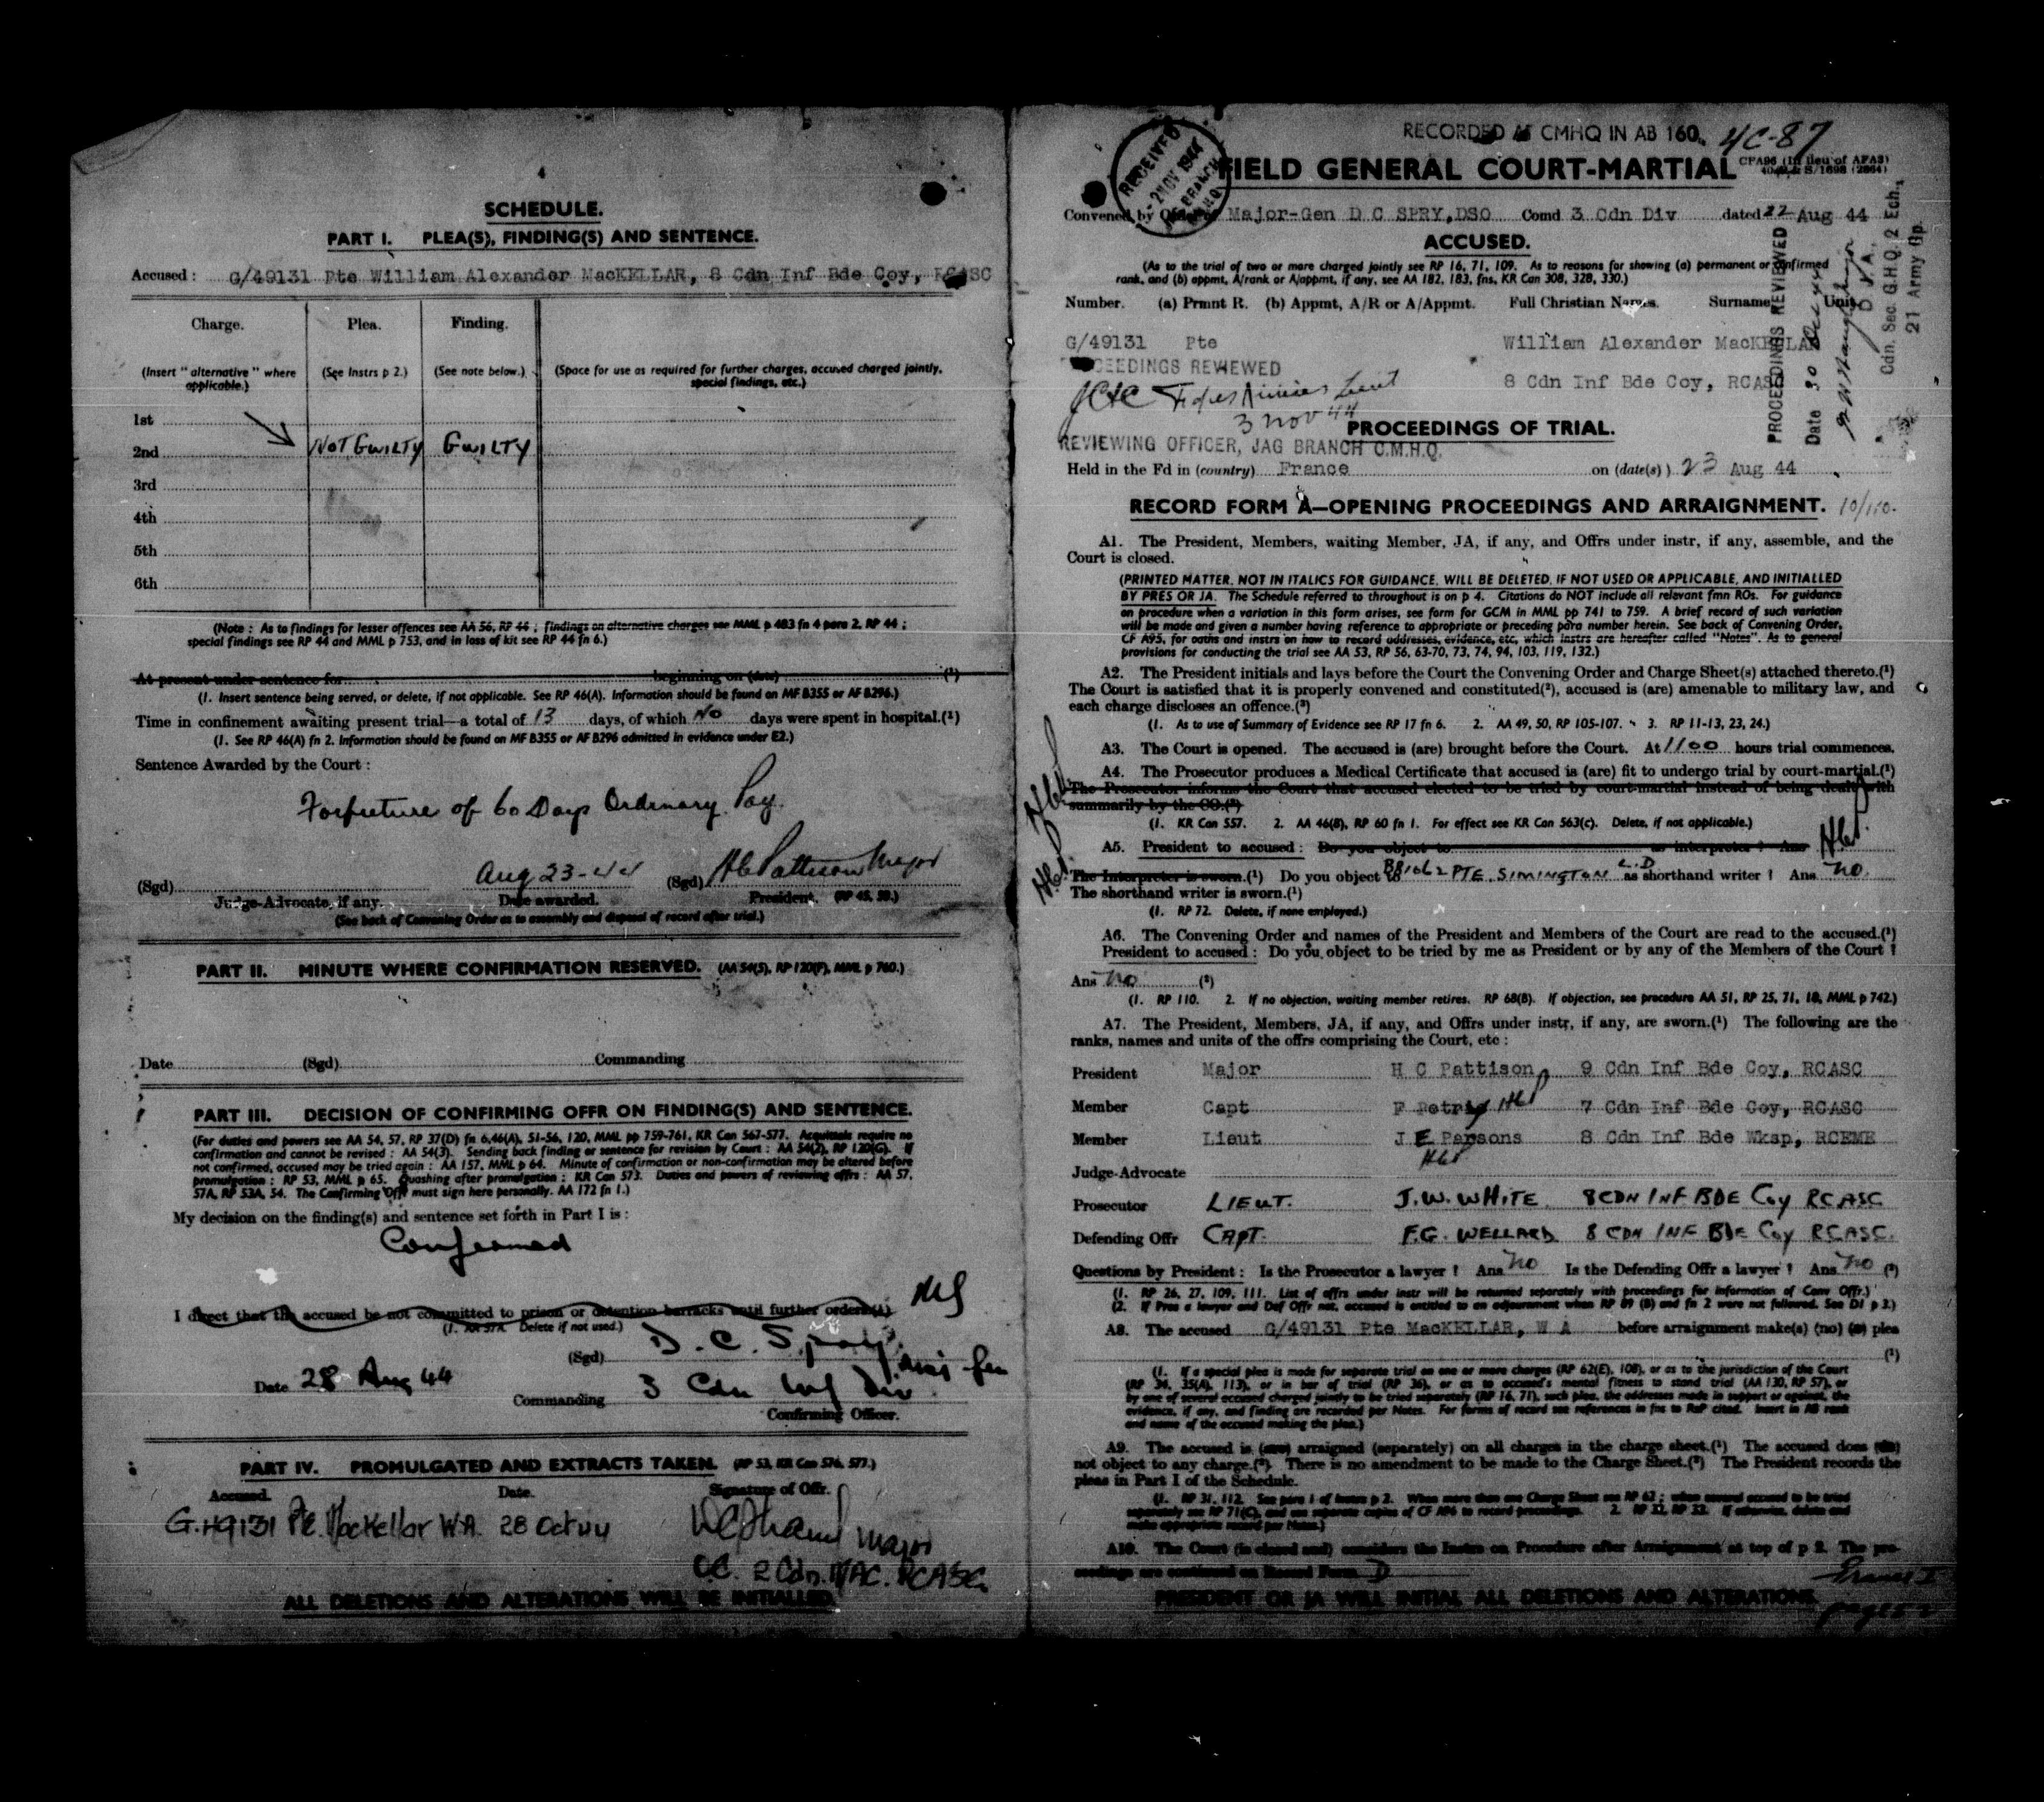 4
SCHEDULE.
PART I. PLEA(S), FINDING(S) AND SENTENCE.
Accused : G/49131 Pte William Alexander MacKELLAR, 8 Cdn Inf Bde Coy, RCASC
Charge. Plea. Finding.
(Insert " alternative " where applicable.) (See Instrs p 2.) (See note below.) (Space for use as required for further charges, accused charged jointly, special findings, etc.)
1st
2nd NOT GUILTY GUILTY
3rd
4th
5th
6th
(Note : As to findings for lesser offences see AA 56, RP 44 ; findings on alternative charges see MML p 483 fn 4 para 2, RP 44 ;
special findings see RP 44 and MML p 753, and in loss of kit see RP 44 fn 6.)
At present under sentence for beginning on (date) (1)
(1. Insert sentence being served, or delete, if not applicable. See RP 46(A). Information should be found on MF B355 or AF B296.)
Time in confinement awaiting present trial—a total of 13 days, of which No days were spent in hospital.(1)
(1. See RP 46(A) fn 2. Information should be found on MF B355 or AF B296 admitted in evidence under E2.)
Sentence Awarded by the Court :
Forfieture of 60 Days Ordinary Pay.
(Sgd) Aug 23-44 (Sgd) HC Pattison Major
Judge-Advocate, if any. Date awarded. President. (RP 45, 50.)
(See back of Convening Order as to assembly and disposal of record after trial.)
PART II. MINUTE WHERE CONFIRMATION RESERVED. (AA 54(5), RP 120(F), MML p 760.)
Date (Sgd) Commanding
PART III. DECISION OF CONFIRMING OFFR ON FINDING(S) AND SENTENCE.
(For duties and powers see AA 54, 57, RP 37(D) fn 6,46(A), 51-56, 120, MML pp 759-761, KR Can 567-577. Acquittals require no
confirmation and cannot be revised : AA 54(3). Sending back finding or sentence for revision by Court : AA 54(2), RP 120(G). If
not confirmed, accused may be tried again : AA 157, MML p 64. Minute of confirmation or non-confirmation may be altered before
promulgation : RP 53, MML p 65. Quashing after promulgation : KR Can 573. Duties and powers of reviewing offrs : AA 57,
57A, RP 53A, 54. The Confirming Offr must sign here personally. AA 172 fn 1.)
My decision on the finding(s) and sentence set forth in Part I is :
Confirmed
I direct that the accused be not committed to prison or detention barracks until further orders(1).
(1. AA 57A. Delete if not used.)
(Sgd) D. C. Spry Maj Gen
Date 28 Aug 44 Commanding 3 Cdn Inf Div
Confirming Officer.
PART IV. PROMULGATED AND EXTRACTS TAKEN. (RP 53, KR Can 576, 577.)
Accused. Date. Signature of Offr.
G.49131 Pte. MacKellar W.A. 28 Oct 44 Major
O.C. 2 Cdn. RCASC.
ALL DELETIONS AND ALTERATIONS WILL BE INITIALLED.
RECORDED AT CMHQ IN AB 160. 4C-87
RECEIVED 2 NOV 1944 BRANCH
FIELD GENERAL COURT-MARTIAL
CFA96 (In lieu of AFA3)
Convened by Order of Major-Gen D C SPRY,DSO Comd 3 Cdn Div dated 22 Aug 44
ACCUSED.
(As to the trial of two or more charged jointly see RP 16, 71, 109. As to reasons for showing (a) permanent or confirmed
rank, and (b) appmt, A/rank or A/appmt, if any, see AA 182, 183, fns, KR Can 308, 328, 330.)
Number. (a) Prmnt R. (b) Appmt, A/R or A/Appmt. Full Christian Names. Surname. Unit.
G/49131 Pte William Alexander MacKELLAR
PROCEEDINGS REVIEWED
8 Cdn Inf Bde Coy, RCASC
Lieut
3 Nov 44
REVIEWING OFFICER, JAG BRANCH C.M.H.Q.
PROCEEDINGS REVIEWED
Date 30 Dec 44
D J A,
Cdn. Sec. G.H.Q. 2 Ech.,
21 Army Gp.
PROCEEDINGS OF TRIAL.
Held in the Fd in (country) France on (date(s) ) 23 Aug 44
RECORD FORM A—OPENING PROCEEDINGS AND ARRAIGNMENT.
A1. The President, Members, waiting Member, JA, if any, and Offrs under instr, if any, assemble, and the
Court is closed.
(PRINTED MATTER, NOT IN ITALICS FOR GUIDANCE, WILL BE DELETED, IF NOT USED OR APPLICABLE, AND INITIALLED
BY PRES OR JA. The Schedule referred to throughout is on p 4. Citations do NOT include all relevant fmn ROs. For guidance
on procedure when a variation in this form arises, see form for GCM in MML pp 741 to 759. A brief record of such variation
will be made and given a number having reference to appropriate or preceding para number herein. See back of Convening Order,
CF A95, for oaths and instrs on how to record addresses, evidence, etc, which instrs are hereafter called "Notes". As to general
provisions for conducting the trial see AA 53, RP 56, 63-70, 73, 74, 94, 103, 119, 132.)
A2. The President initials and lays before the Court the Convening Order and Charge Sheet(s) attached thereto.(1)
The Court is satisfied that it is properly convened and constituted(2), accused is (are) amenable to military law, and
each charge discloses an offence.(3)
(1. As to use of Summary of Evidence see RP 17 fn 6. 2. AA 49, 50, RP 105-107. 3. RP 11-13, 23, 24.)
A3. The Court is opened. The accused is (are) brought before the Court. At 1100 hours trial commences.
A4. The Prosecutor produces a Medical Certificate that accused is (are) fit to undergo trial by court-martial.(1)
The Prosecutor informs the Court that accused elected to be tried by court-martial instead of being dealt with
summarily by the CO.(2)
(1. KR Can 557. 2. AA 46(8), RP 60 fn 1. For effect see KR Can 563(c). Delete, if not applicable.)
A5. President to accused : Do you object to as interpreter ? Ans
The Interpreter is sworn.(1) Do you object to PTE. SIMINGTON L.D as shorthand writer ? Ans no.
The shorthand writer is sworn.(1)
(1. RP 72. Delete, if none employed.)
A6. The Convening Order and names of the President and Members of the Court are read to the accused.(1)
President to accused : Do you object to be tried by me as President or by any of the Members of the Court ?
Ans No (2)
(1. RP 110. 2. If no objection, waiting member retires. RP 68(B). If objection, see procedure AA 51, RP 25, 71, 18, MML p 742.)
A7. The President, Members, JA, if any, and Offrs under instr, if any, are sworn.(1) The following are the
ranks, names and units of the offrs comprising the Court, etc :
President Major H C Pattison 9 Cdn Inf Bde Coy, RCASC
Member Capt F Petrie 7 Cdn Inf Bde Coy, RCASC
Member Lieut J E Parsons 8 Cdn Inf Bde Wksp, RCEME
Judge-Advocate
Prosecutor LIEUT. J.W. WHITE 8 CDN INF BDE Coy RCASC
Defending Offr CAPT. F.G. WELLARD 8 CDN INF BDE Coy RCASC.
Questions by President : Is the Prosecutor a lawyer ? Ans no Is the Defending Offr a lawyer ? Ans no (2)
(1. RP 26, 27, 109, 111. List of offrs under instr will be returned separately with proceedings for information of Conv Offr.)
(2. If Pros a lawyer and Def Offr not, accused is entitled to an adjournment when RP 89 (B) and fn 2 were not followed. See D1 p 3.)
A8. The accused G/49131 Pte MacKELLAR, W A before arraignment make(s) (no) (a) plea
(1)
(1. If a special plea is made for separate trial on one or more charges (RP 62(E), 108), or as to the jurisdiction of the Court
(RP 34, 35(A), 113), or in bar of trial (RP 36), or as to accused's mental fitness to stand trial (AA 130, RP 57), or
by one of several accused charged jointly to be tried separately (RP 16, 71), such plea, the addresses made in support or against, the
evidence, if any, and finding are recorded per Notes. For forms of record see references in fns to RsP cited. Insert in A8 rank
and name of the accused making the plea.)
A9. The accused is (are) arraigned (separately) on all charges in the charge sheet.(1) The accused does (do)
not object to any charge.(2) There is no amendment to be made to the Charge Sheet.(2) The President records the
pleas in Part I of the Schedule.
A10. The Court (is closed and) considers the Instrs on Procedure after Arraignment at top of p 2. The pro-
ceedings are continued on Record Form D
PRESIDENT OR JA WILL INITIAL ALL DELETIONS AND ALTERATIONS.